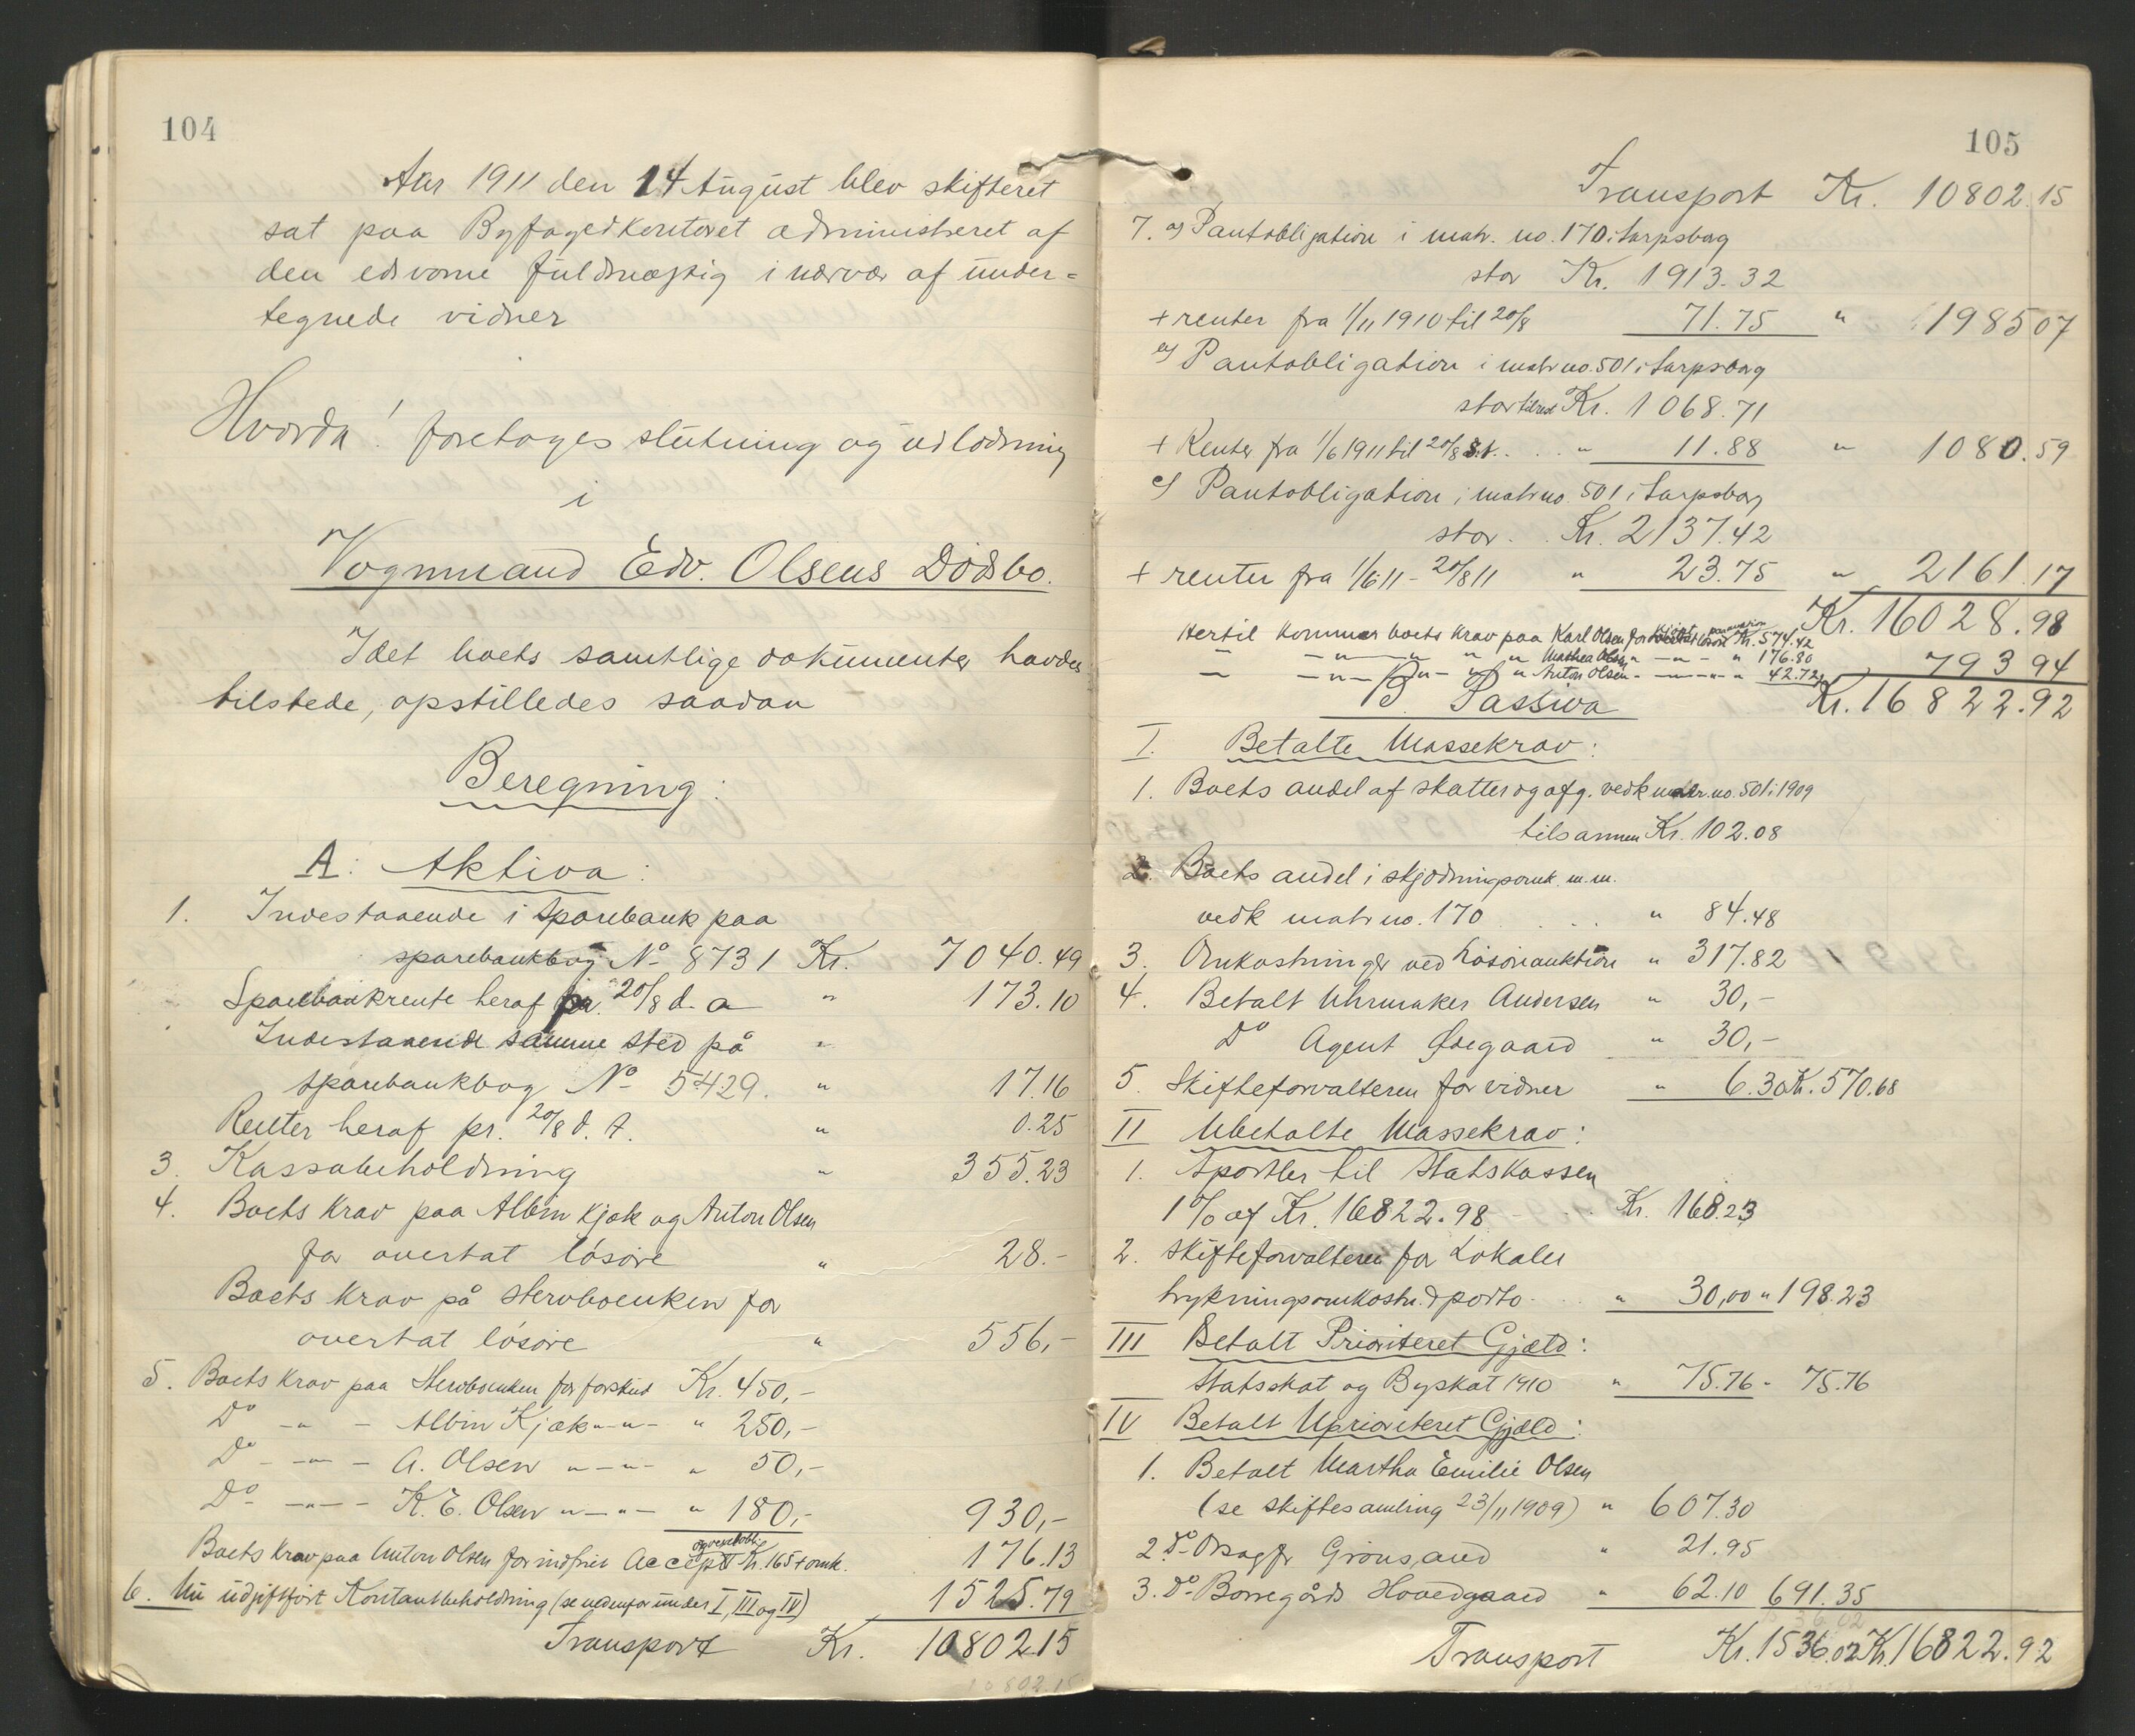 104
Aar 1911 den 14 August blev skifteret
sat paa Byfogedkontoret administreret af
den edsvorne fuldmægtig i nærvær af under=
tegnede vidner
Hvorda! foretoges slutning og udlodning
i
Vognmand Edv. Olsens Dödsbo.
Idet boets samtlige dokumenter havdes
tilstede, opstilledes saadan
Beregning:
A: Aktiva:
1. Indestaaende i Sparebank paa
sparebankbog No 8731 Kr. 7040.49
Sparebankrente heraf pr. 20/8 d. a " 173.10
Indestaaende samme sted på "
sparebankbog No 5429. " 17.16
Renter heraf pr. 20/8 d. A. " 0.25
3. Kassabeholdning " 355.23
4. Boets krav paa Albin Kjøk og Anton Olsen
for overtat lösöre " 28.-
Boets krav på Stervboenken for
overtat lösöre " 556,-
5. Boets krav paa Stervboenken for forskud Kr. 450,-
Do -"- Albin Kjøk -"-"- " 250,-
Do -"- A. Olsen "-"- " 50,-
Do -"- K. E. Olsen "-"- " 180,- 930,-
Boets krav paa Anton Olsen for indfriet Accept Kr. 165 + omk. 176.13
6. Nu udgiftfört Kontantbeholdning (se nedenfor under I, III og IV) 1525.79
Transport Kr. 10802 15
10802.15
105
Transport Kr. 10802.15
7. a) Pantobligation i matr. no. 170 i Sarpsborg
stor Kr. 1913.32
+ renter fra 1/11 1910 til 20/8 71.75 " 1985 07
b) Pantobligation i matr no. 501 i Sarpsborg
stor tilrest Kr. 1068.71
+ Renter fra 1/6 1911 til 20/8 s.A. . . . " 11.88 " 1080.59
c) Pantobligation i matr no. 501 i Sarpsborg
stor . . Kr. 2137.42
+ renter fra 1/6 11 - 20/8 11 " 23.75 " 2161.17
Kr. 16028.98
Hertil kommer boets krav paa Karl Olsen for kjöpt paa auktion Kr. 574.42
- -"- " " " Mathea Olsen " -"- " 176.80
- -"- " " " Anton Olsen - -"- " 42.72 793 94
Kr. 16822.92
B. Passiva
I. Betalte Massekrav:
1. Boets andel af skatter og afg. vedk matr. no. 501 i 1909
tilsammen Kr. 102.08
2. Boets andel i skjödningsomk. m. m.
vedk matr no. 170 . . . " 84.48
3. Omkostninger ved Lösöreauktion " 317.82
4. Betalt Uhrmaker Andersen " 30,-
Do Agent Ødegaard " 30,-
5. Skifteforvalteren for vidner " 6.30 Kr. 570.68
II Ubetalte Massekrav:
1. Sportler til Statskassen
1% af Kr. 16822.98 - . . Kr. 168.23
2. Skifteforvalteren for Lokaler
trykningsomkostn. & porto . . " 30,00 " 198.23
III Betalt Prioriteret Gjæld:
Statsskat og Byskat 1910 " 75.76 - 75.76
IV Betalt Uprioriteret Gjæld:
1. Betalt Martha Emilie Olsen
(se skiftesamling 23/11 1909) " 607.30
2. Do Grönsand " 21.95
3. Do Borregårds Hovedgaard " 62.10 691.35
Transport Kr. 1536.02 Kr. 16822.92